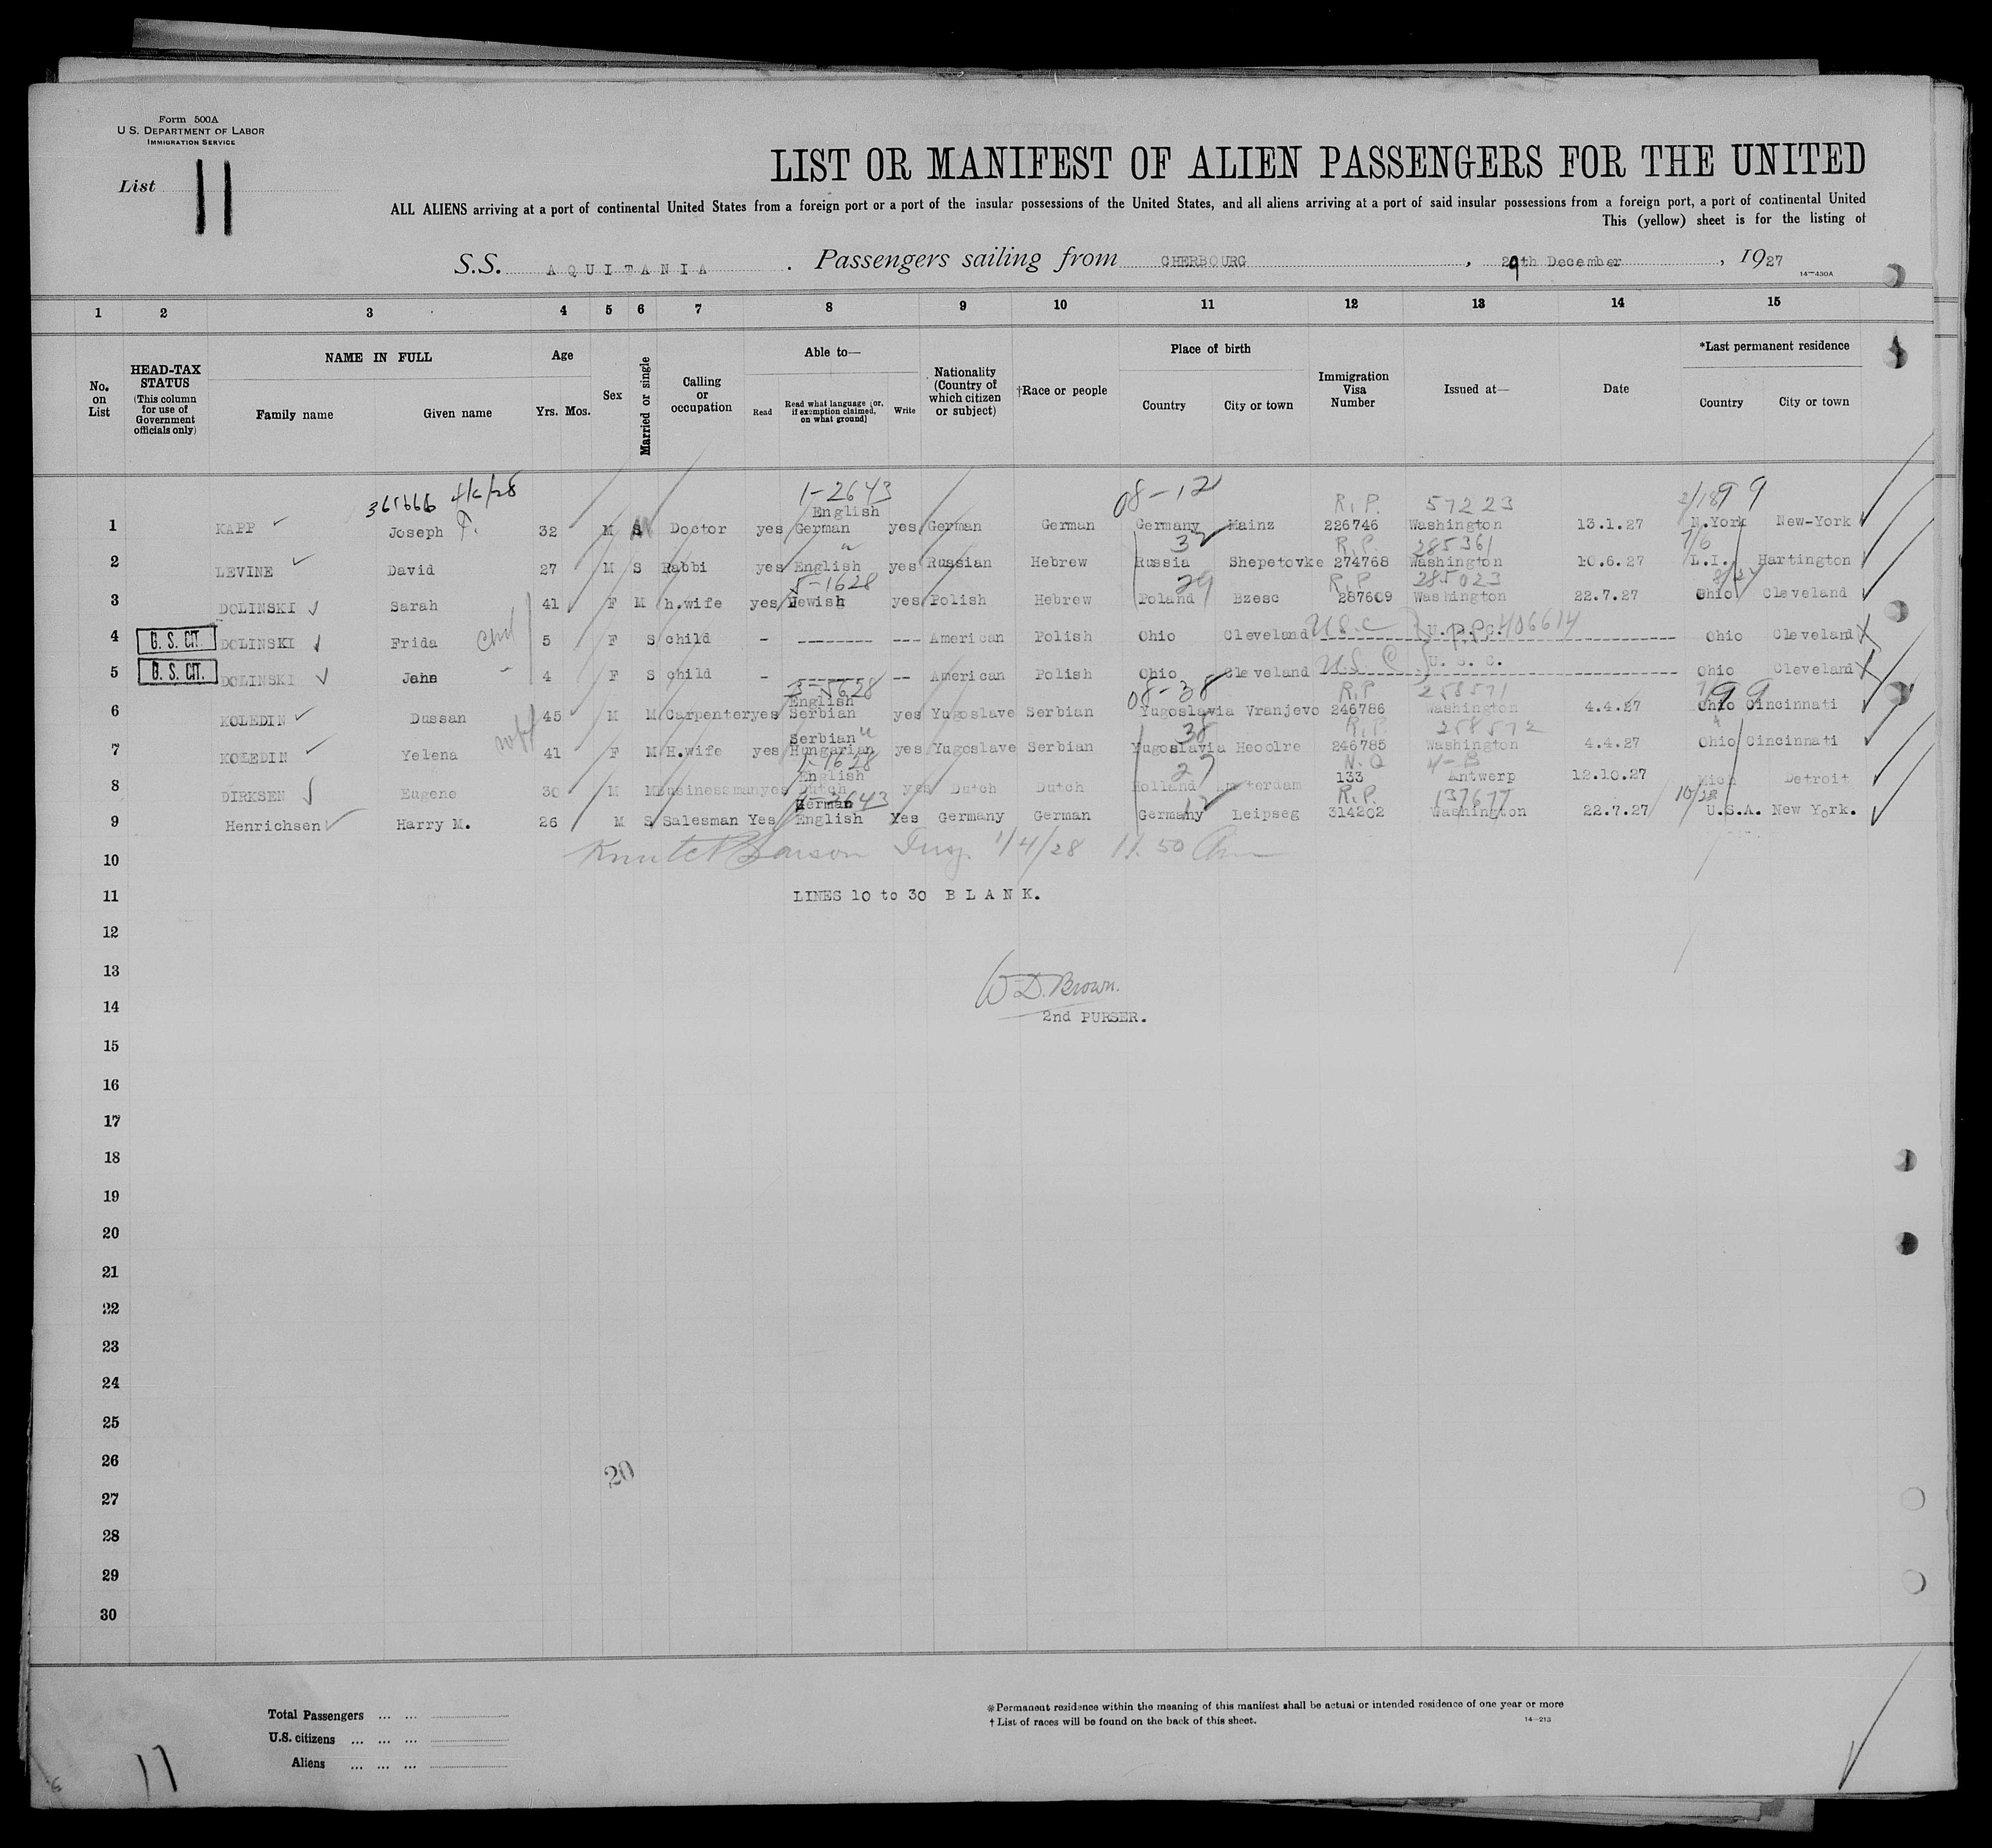 Form 500A
U.S. DEPARTMENT OF LABOR
IMMIGRATION SERVICE
List 11
LIST OR MANIFEST OF ALIEN PASSENGERS FOR THE UNITED
ALL ALIENS arriving at a port of continental United States from a foreign port or a port of the insular possessions of the United States, and all aliens arriving at a port of said insular possessions from a foreign port, a port of continental United
This (yellow) sheet is for the listing of
S.S. AQUITANIA . Passengers sailing from CHERBOURG , 29th December , 1927
14-430A
1 2 3 4 5 6 7 8 9 10 11 12 13 14 15
No. on List
HEAD-TAX STATUS (This column for use of Government officials only)
NAME IN FULL
Family name Given name
Age
Yrs. Mos.
Sex
Married or single
Calling or occupation
Able to—
Read
Read what language (or, if exemption claimed, on what ground)
Write
Nationality (Country of which citizen or subject)
†Race or people
Place of birth
Country City or town
Immigration Visa Number
Issued at—
Date
*Last permanent residence
Country City or town
365666 4/6/28 1-2643 08-12 R.P. 57223 2/18 99
English
1 KAPP Joseph 32 M S Doctor yes German yes German German Germany Mainz 226746 Washington 13.1.27 N.York New-York
3 R.P. 285361 7/6
2 LEVINE David 27 M S Rabbi yes English yes Russian Hebrew Russia Shepetovke 274768 Washington 10.6.27 L.I. Hartington
5-1628 29 R.P. 285023 8/27
3 DOLINSKI Sarah 41 F M h.wife yes Jewish yes Polish Hebrew Poland Bzesc 287609 Washington 22.7.27 Ohio Cleveland
4 U. S. CIT. DOLINSKI Frida 5 F S child - ------- --- American Polish Ohio Cleveland U.S.C. U.S.C. P.P. 406614 Ohio Cleveland
5 U. S. CIT. DOLINSKI Jane 4 F S child - -- American Polish Ohio Cleveland U.S.C. U. S. C. Ohio Cleveland
3-5628 08-38 R.P. 258571 99
English
6 KOLEDIN Dussan 45 M M Carpenter yes Serbian yes Yugoslave Serbian Yugoslavia Vranjevo 246786 Washington 4.4.27 Ohio Cincinnati
Serbian 38 R.P. 258572
7 KOLEDIN Yelena wife 41 F M H.wife yes Hungarian yes Yugoslave Serbian Yugoslavia Heoolre 246785 Washington 4.4.27 Ohio Cincinnati
1-1628 27 N.Q 4-B
English
8 DIRKSEN Eugene 30 M M Businessman yes Dutch yes Dutch Dutch Holland Amsterdam 133 Antwerp 12.10.27 Mich Detroit
German 2643 12 R.P. 137677 10/28
9 Henrichsen Harry M. 26 M S Salesman Yes English Yes Germany German Germany Leipseg 314202 Washington 22.7.27 U.S.A. New York.
10 Insp. 1/4/28 11.50 Am
11 LINES 10 to 30 B L A N K.
12
13
W D. Brown.
14
2nd PURSER.
15
16
17
18
19
20
21
22
23
24
25
26
20
27
28
29
30
Total Passengers ... ...
U.S. citizens ... ... ...
Aliens ... ... ...
*Permanent residence within the meaning of this manifest shall be actual or intended residence of one year or more
†List of races will be found on the back of this sheet.
14-213
11